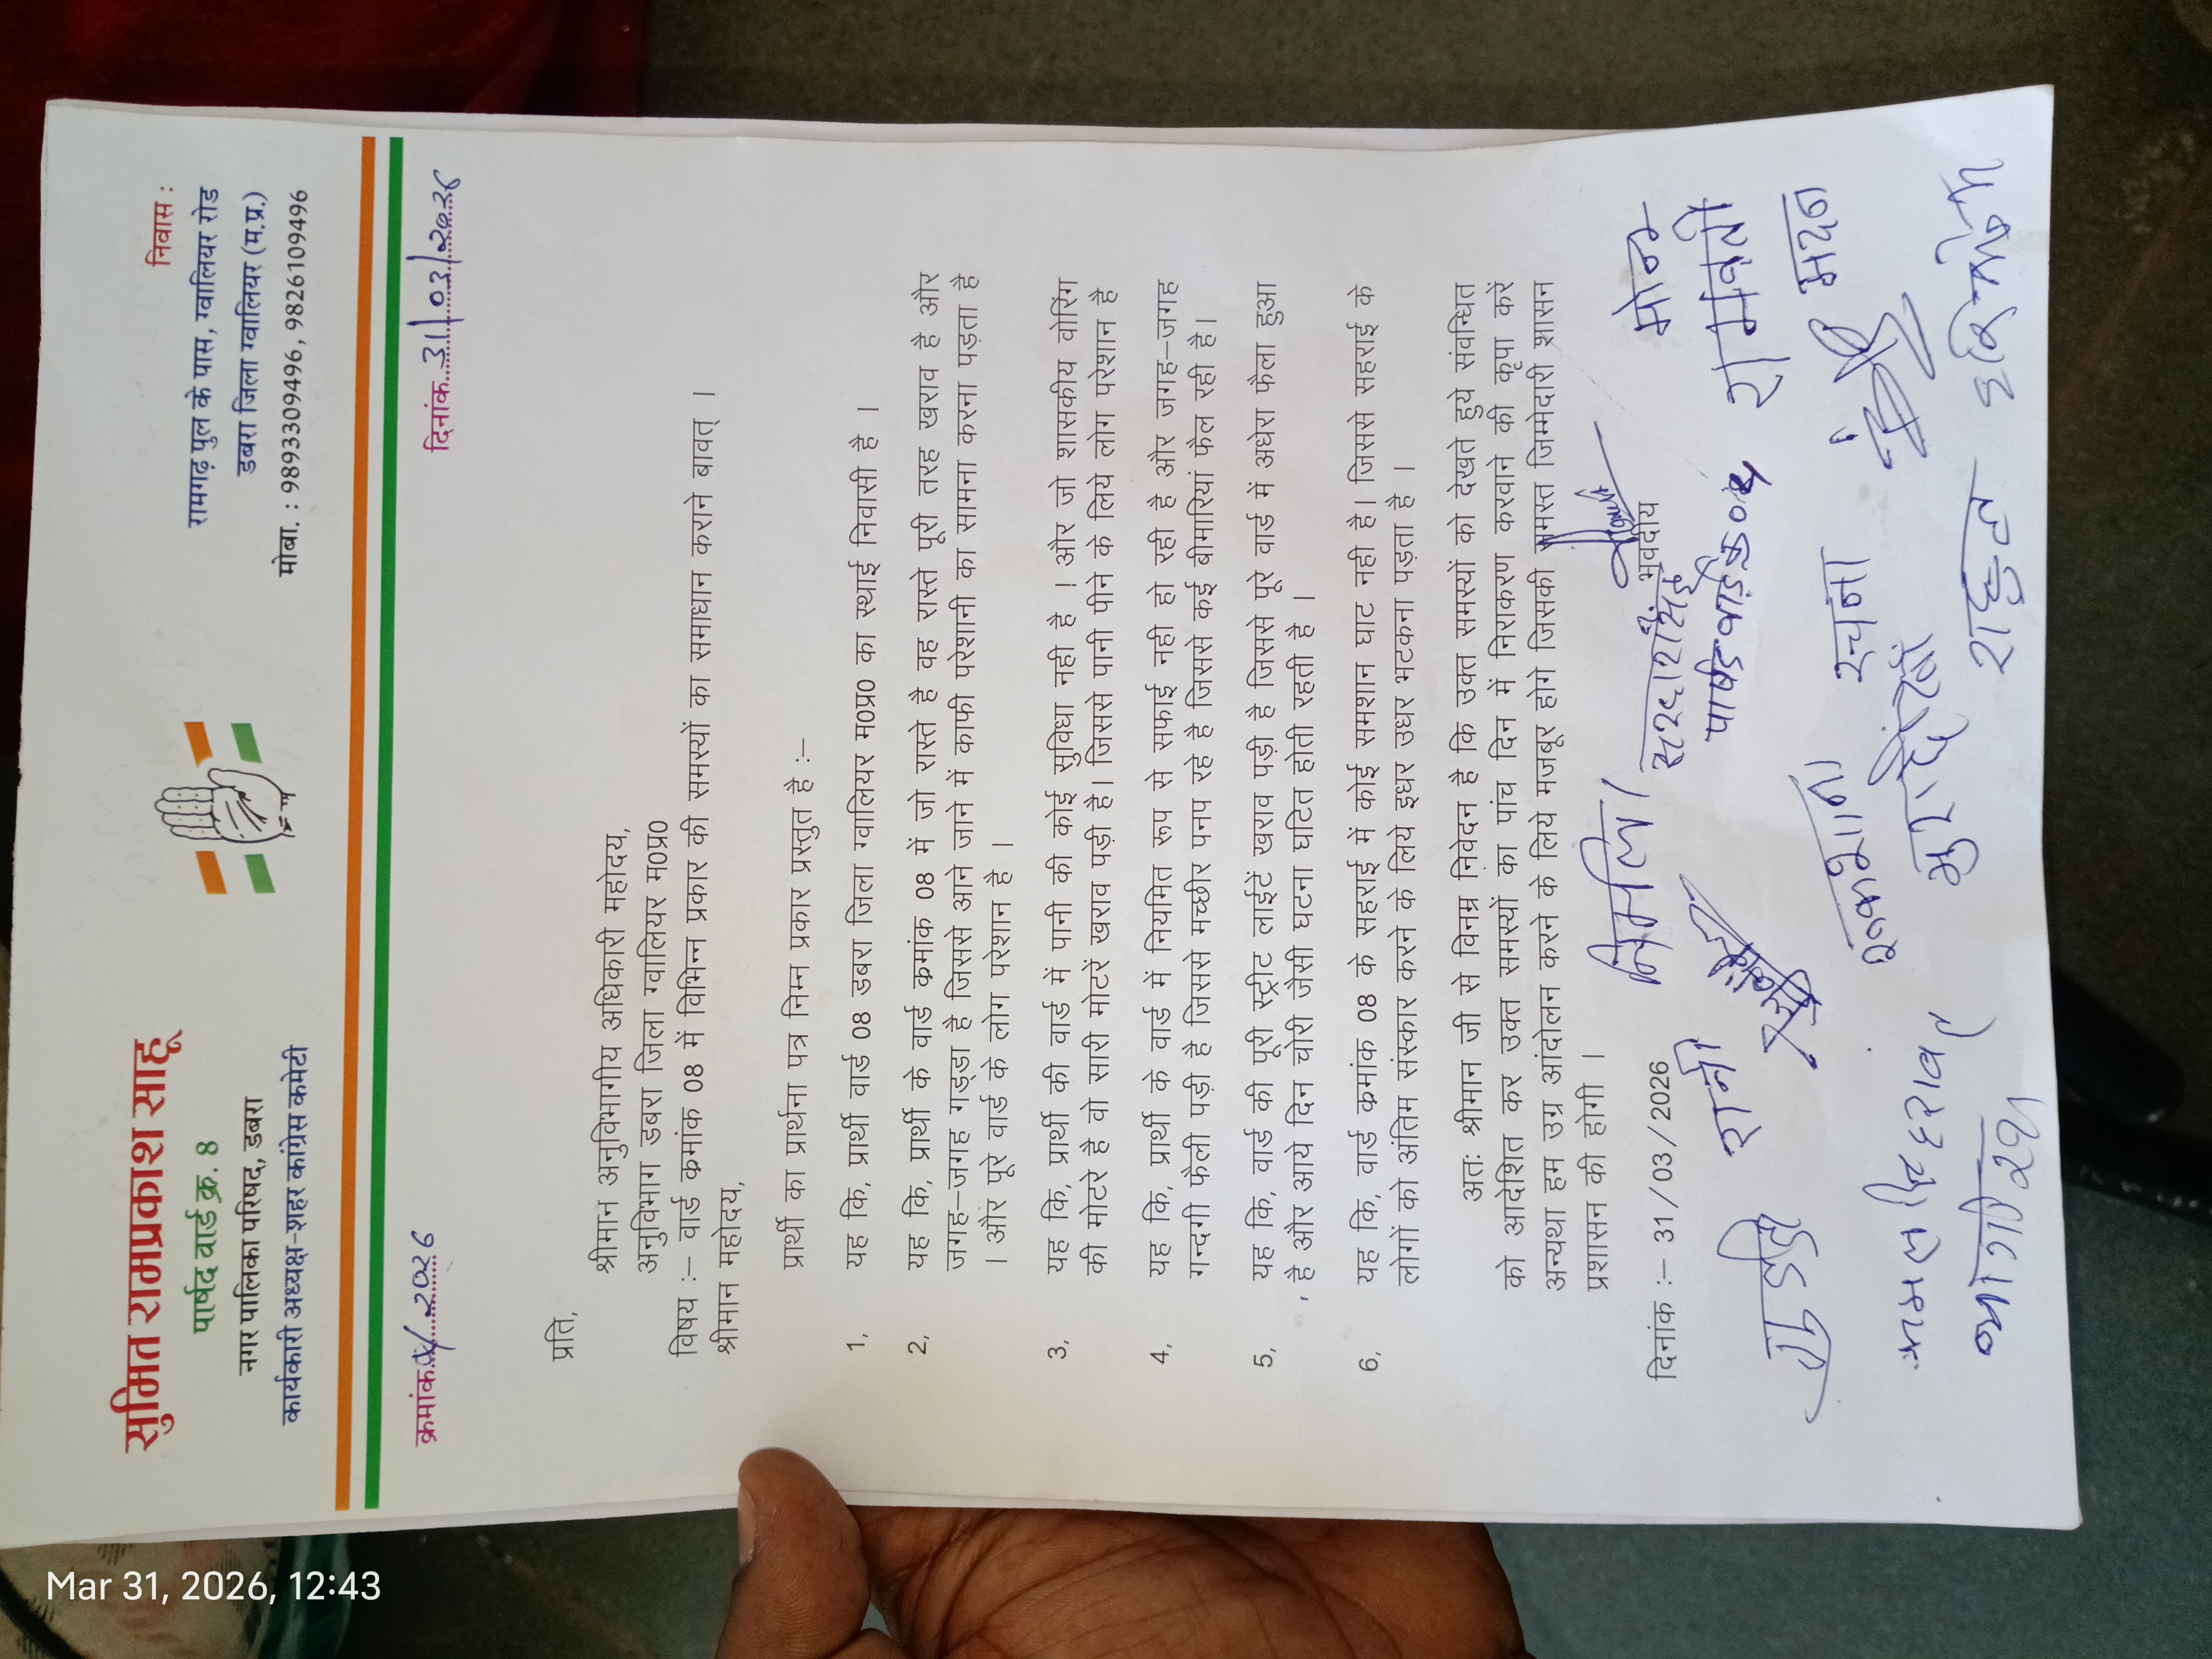 सुमित रामप्रकाश साहू
पार्षद वार्ड क्र. 8
नगर पालिका परिषद, डबरा
कार्यकारी अध्यक्ष-शहर कांग्रेस कमेटी
निवास :
रामगढ़ पुल के पास, ग्वालियर रोड
डबरा जिला ग्वालियर (म.प्र.)
मोबा. : 9893309496, 9826109496
क्रमांक 2026
दिनांक 31/03/2026
प्रति,
श्रीमान अनुविभागीय अधिकारी महोदय,
अनुविभाग डबरा जिला ग्वालियर म0प्र0
विषय :– वार्ड क्रमांक 08 में विभिन्न प्रकार की समस्यों का समाधान कराने बावत् ।
श्रीमान महोदय,
प्रार्थी का प्रार्थना पत्र निम्न प्रकार प्रस्तुत है :–
1, यह कि, प्रार्थी वार्ड 08 डबरा जिला ग्वालियर म0प्र0 का स्थाई निवासी है ।
2, यह कि, प्रार्थी के वार्ड क्रमांक 08 में जो रास्ते है वह रास्ते पूरी तरह खराव है और
जगह–जगह गड्डा है जिससे आने जाने में काफी परेशानी का सामना करना पड़ता है
। और पूरे वार्ड के लोग परेशान है ।
3, यह कि, प्रार्थी की वार्ड में पानी की कोई सुविधा नही है । और जो शासकीय वोरिंग
की मोटरे है वो सारी मोटरें खराव पड़ी है। जिससे पानी पीने के लिये लोग परेशान है
4, यह कि, प्रार्थी के वार्ड में नियमित रूप से सफाई नही हो रही है और जगह–जगह
गन्दगी फैली पड़ी है जिससे मच्छीर पनप रहे है जिससे कई बीमारियां फैल रही है।
5, यह कि, वार्ड की पूरी स्ट्रीट लाईटें खराव पड़ी है जिससे पूरे वार्ड में अधेरा फैला हुआ
है और आये दिन चोरी जैसी घटना घटित होती रहती है ।
6, यह कि, वार्ड क्रमांक 08 के सहराई में कोई समशान घाट नही है। जिससे सहराई के
लोगों को अंतिम संस्कार करने के लिये इधर उधर भटकना पड़ता है ।
अतः श्रीमान जी से विनम्र निवेदन है कि उक्त समस्यों को देखते हुये संवन्धित
को आदेशित कर उक्त समस्यों का पांच दिन में निराकरण करवाने की कृपा करें
अन्यथा हम उग्र आंदोलन करने के लिये मजबुर होगे जिसकी समस्त जिम्मेदारी शासन
प्रशासन की होगी ।
दिनांक :– 31/03/2026
भवदीय
पार्षद वार्ड क्र 08
निर्मला
रानी
रामवती
रचना
राहुल
Mar 31, 2026, 12:43